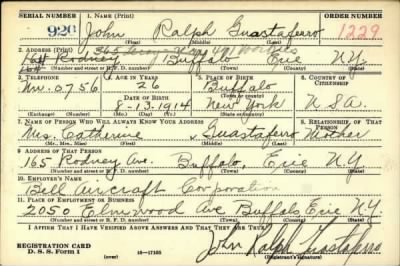 SERIAL NUMBER 1. NAME (Print) ORDER NUMBER
920 John Ralph Guastaferro 1229
(First) (Middle) (Last)
2. ADDRESS (Print)
165 Rodney Buffalo Erie N.Y.
(Number and street or R. F. D. number) (Town) (County) (State)
3. TELEPHONE 4. AGE IN YEARS 5. PLACE OF BIRTH 6. COUNTRY OF CITIZENSHIP
Un. 0756 26 Buffalo
DATE OF BIRTH (Town or county)
8-13-1914 New York U SA.
(Exchange) (Number) (Mo.) (Day) (Yr.) (State or country)
7. NAME OF PERSON WHO WILL ALWAYS KNOW YOUR ADDRESS 8. RELATIONSHIP OF THAT PERSON
Mrs. Catherine Guastaferro Mother
(Mr., Mrs., Miss) (First) (Middle) (Last)
9. ADDRESS OF THAT PERSON
165 Rodney Ave. Buffalo, Erie N.Y.
(Number and street or R. F. D. number) (Town) (County) (State)
10. EMPLOYER'S NAME
Bell Aircraft Corporation
11. PLACE OF EMPLOYMENT OR BUSINESS
2050 Elmwood Ave Buffalo Erie N.Y.
(Number and street or R. F. D. number) (Town) (County) (State)
I AFFIRM THAT I HAVE VERIFIED ABOVE ANSWERS AND THAT THEY ARE TRUE.
REGISTRATION CARD
D. S. S. Form 1 (over) 16-17105
John Ralph Guastaferro
(Registrant's signature)